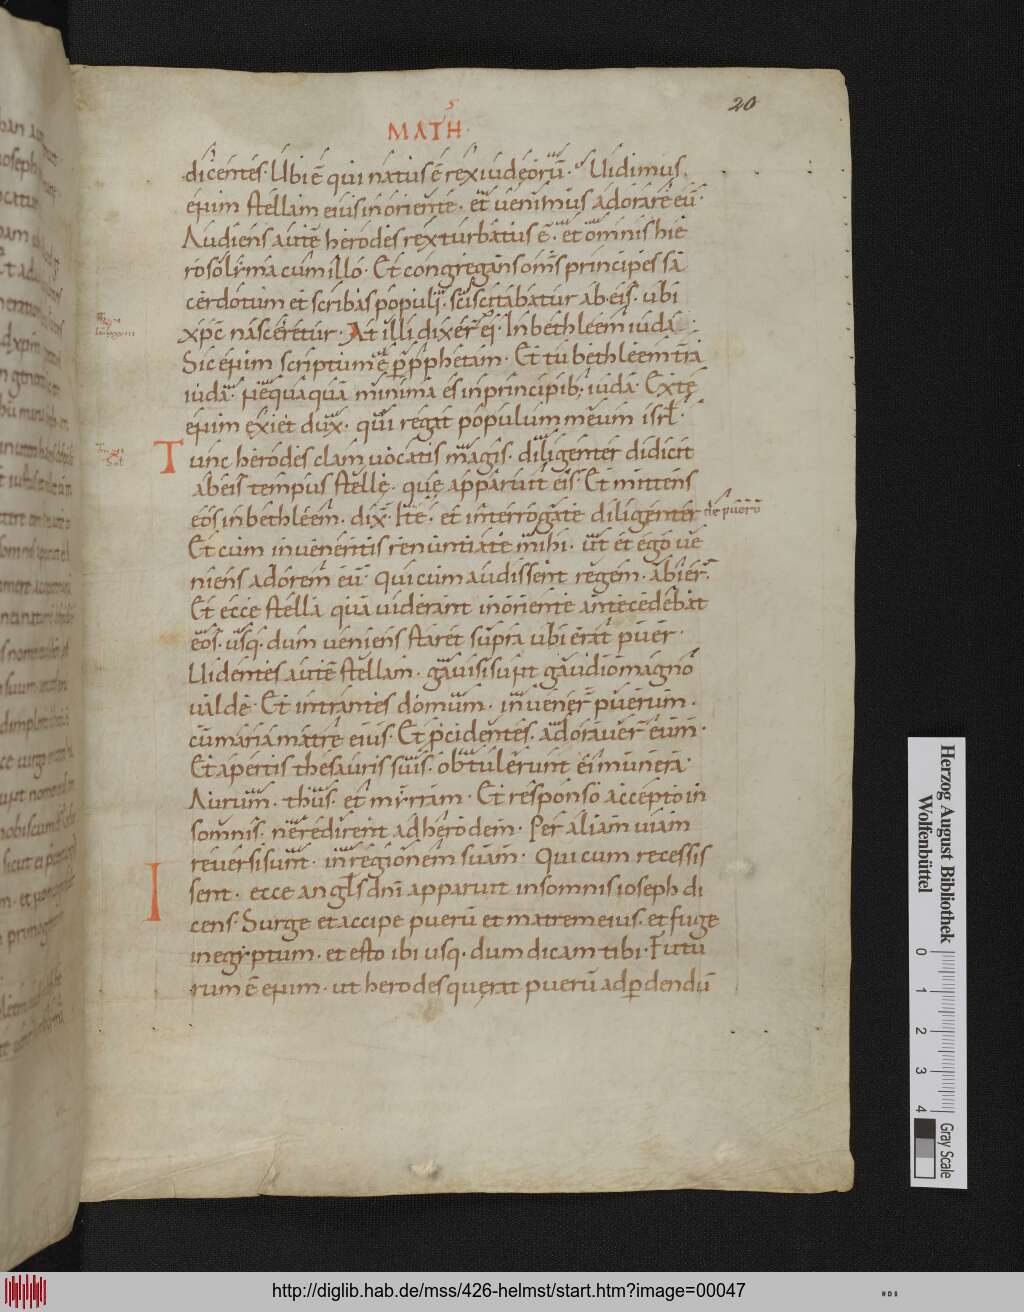 20
MATH
dicentes. Ubi ē qui natus ē rex iudeorū. Uidimus
enim stellam eius in oriente. et uenimus adorare eū.
Audiens autē herodes rex turbatus ē. et omnis hie
rosolima cum illo. Et congregans om̄s principes sa
cerdotum et scribas populi. sciscitabatur ab eis. ubi
xp̄c nasceretur. At illi dixer̄ ei. In bethleem iuda.
Sic enim scriptum ē p̄ pphetam. Et tu bethleem t̄ra
iuda. nequaquā minima es in principib; iuda. Ex te
enim exiet dux. qui regat populum meum isrł.
Tunc herodes clam uocatis magis. diligenter didicit
ab eis tempus stellę. quę apparuit eis. Et mittens
eos in bethleem. dix̄. Ite. et interrogate diligenter de puero
Et cum inueneritis renuntiate mihi. ut et ego ue
niens adorem eū. Qui cum audissent regem. abier̄.
Et ecce stella quā uiderant in oriente antecedebat
eos. usq. dum ueniens staret supra ubi erat puer.
Uidentes autē stellam. gauisi sunt gaudio magno
ualde. Et intrantes domum. inuener̄ puerum.
cū maria matre eius. Et p̄cidentes. adorauer̄ eum.
Et apertis thesauris suis. obtulerunt ei munera.
Aurum. thus. et mirram. Et responso accepto in
somnis. ne redirent ad herodem. Per aliam uiam
reuersi sunt. in regionem suam. Qui cum recessis
sent. ecce angłs dnī apparuit in somnis ioseph di
cens. Surge et accipe puerū et matrem eius. et fuge
in egyptum. et esto ibi usq. dum dicam tibi. Futu
rum ē enim. ut herodes querat puerū ad p̱dendū
Herzog August Bibliothek
Wolfenbüttel
0 1 2 3 4
Gray Scale
http://diglib.hab.de/mss/426-helmst/start.htm?image=00047